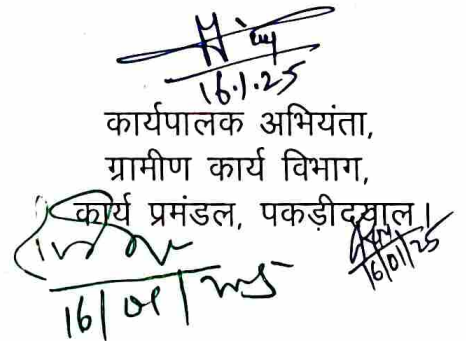 16.1.25
कार्यपालक अभियंता,
ग्रामीण कार्य विभाग,
कार्य प्रमंडल, पकड़ीदयाल।
16/01/25
16/01/25